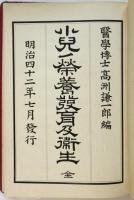 醫學博士高洲謙一郎編
小兒ノ榮養發育及衞生 全
明治四十二年七月發行